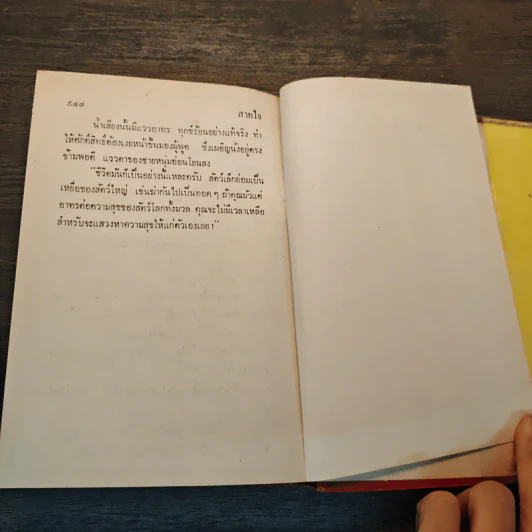 ๕๔๗
สายใจ
น้ำเสียงนั้นมีแววอาทร ทุกข์ร้อนอย่างแท้จริง ทำ
ให้ศักดิ์สิทธิ์ต้องเงยหน้าขึ้นมองผู้พูด ซึ่งเผอิญนั่งอยู่ตรง
ข้ามพอดี แววตาของชายหนุ่มอ่อนโยนลง
"ชีวิตมันก็เป็นอย่างนี้แหละครับ สัตว์เล็กย่อมเป็น
เหยื่อของสัตว์ใหญ่ เข่นฆ่ากันไปเป็นทอดๆ ถ้าคุณมัวแต่
อาทรต่อความสุขของสัตว์โลกทั้งมวล คุณจะไม่มีเวลาเหลือ
สำหรับจะแสวงหาความสุขให้แก่ตัวเองเลย!"